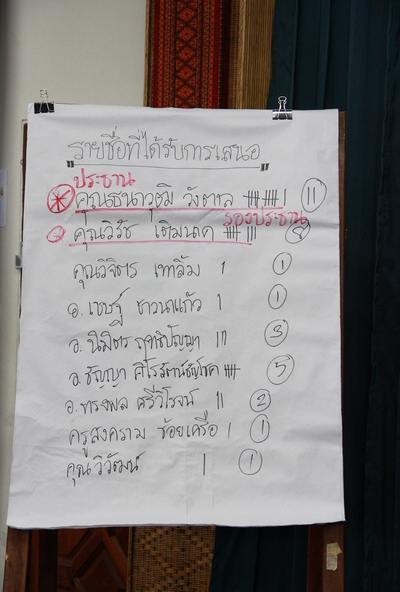 รายชื่อที่ได้รับการเสนอ
ประธาน
คุณธนาวุฒิ วังตาล 11
รองประธาน
คุณวิรัช เติมนาค 8
คุณวิจิตร เทาลิ้ม 1
อ. เชษฐ์ ชาวนาแก้ว 1
อ. นิมิตร ฤทธิปัญญา 3
อ. ธัญญา 5
อ. ทรงพล ศรีวิโรจน์ 2
ครูสงคราม ช้อยเครือ 1
คุณวิวัฒน์ 1